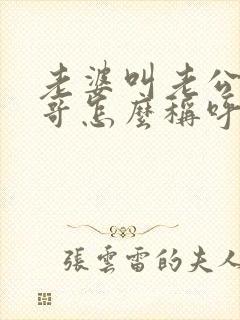 老婆叫老公
哥怎麼稱呼
張雲雷的夫人